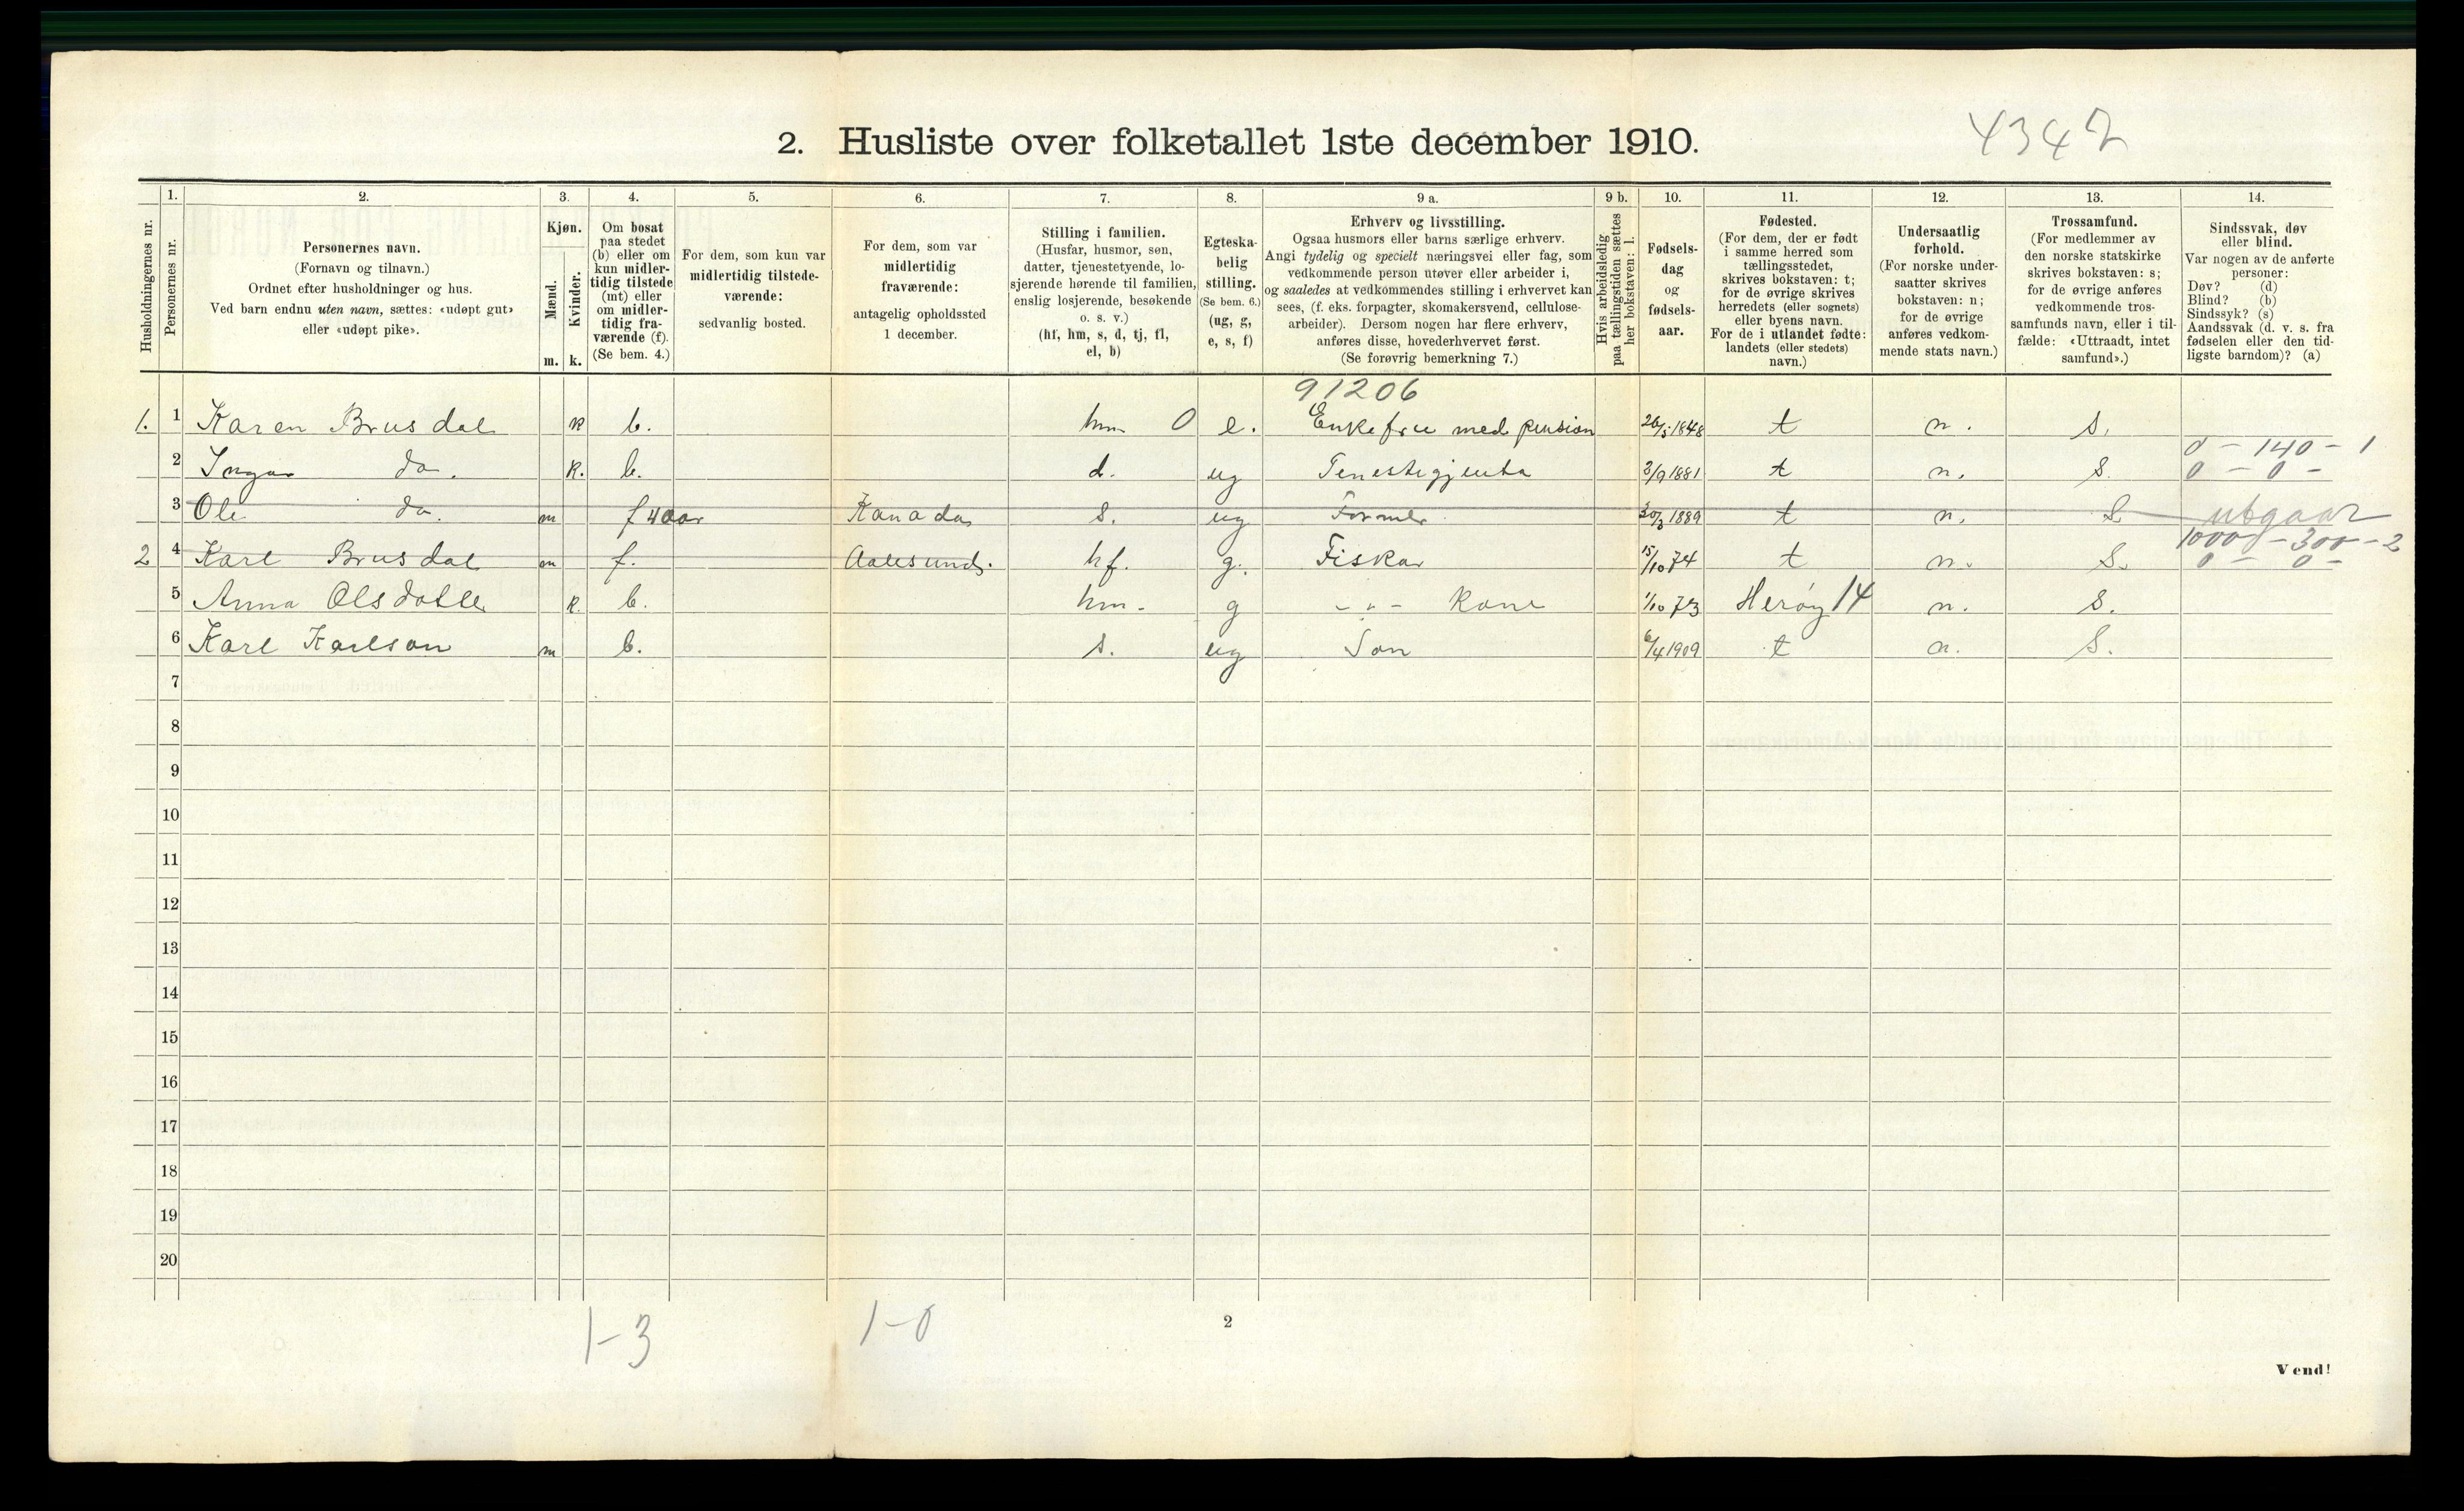 4342
2. Husliste over folketallet 1ste december 1910.
Husholdningernes nr.
1.
Personernes nr.
2.
Personernes navn.
(Fornavn og tilnavn.)
Ordnet efter husholdninger og hus.
Ved barn endnu uten navn, sættes: «udøpt gut»
eller «udøpt pike».
3.
Kjøn.
Mænd.
Kvinder.
m. k.
4.
Om bosat
paa stedet
(b) eller om
kun midler-
tidig tilstede
(mt) eller
om midler-
tidig fra-
værende (f).
(Se bem. 4.)
5.
For dem, som kun var
midlertidig tilstede-
værende:
sedvanlig bosted.
6.
For dem, som var
midlertidig
fraværende:
antagelig opholdssted
1 december.
7.
Stilling i familien.
(Husfar, husmor, søn,
datter, tjenestetyende, lo-
sjerende hørende til familien,
enslig losjerende, besøkende
o. s. v.)
(hf, hm, s, d, tj, fl,
el, b)
8.
Egteska-
belig
stilling.
(Se bem. 6.)
(ug, g,
e, s, f)
9 a.
Erhverv og livsstilling.
Ogsaa husmors eller barns særlige erhverv.
Angi tydelig og specielt næringsvei eller fag, som
vedkommende person utøver eller arbeider i,
og saaledes at vedkommendes stilling i erhvervet kan
sees, (f. eks. forpagter, skomakersvend, cellulose-
arbeider). Dersom nogen har flere erhverv,
anføres disse, hovederhvervet først.
(Se forøvrig bemerkning 7.)
9 b.
Hvis arbeidsledig
paa tællingstiden sættes
her bokstaven: l.
10.
Fødsels-
dag
og
fødsels-
aar.
11.
Fødested.
(For dem, der er født
i samme herred som
tællingsstedet,
skrives bokstaven: t;
for de øvrige skrives
herredets (eller sognets)
eller byens navn.
For de i utlandet fødte:
landets (eller stedets)
navn.)
12.
Undersaatlig
forhold.
(For norske under-
saatter skrives
bokstaven: n;
for de øvrige
anføres vedkom-
mende stats navn.)
13.
Trossamfund.
(For medlemmer av
den norske statskirke
skrives bokstaven: s;
for de øvrige anføres
vedkommende tros-
samfunds navn, eller i til-
fælde: «Uttraadt, intet
samfund».)
14.
Sindssvak, døv
eller blind.
Var nogen av de anførte
personer:
Døv? (d)
Blind? (b)
Sindssyk? (s)
Aandssvak (d. v. s. fra
fødselen eller den tid-
ligste barndom)? (a)
91206
1. 1 Karen Brusdal k b. hm 0 e. Enkefru med pension 26/5 1848 t n. s.
0 - 140 - 1
2 Inga do. k. b. d. ug Tenestegjenta 3/9 1881 t n. s. 0 - 0 -
3 Ole do. m f 4 aar Kanada s. ug Former 30/3 1889 t n. s. utgaar
1000 - 300 - 2
2 4 Karl Brusdal m f. Aalesund. hf. g. Fiskar 15/10 74 t n. s. 0 - 0 -
5 Anna Olsdotter k. b. hm. g -"- Kone 1/10 73 Herøy 14 n. s.
6 Karl Karlson m b. s. ug Son 6/4 1909 t n. s.
7
8
9
10
11
12
13
14
15
16
17
18
19
20
1-3 1-0
2
Vend!